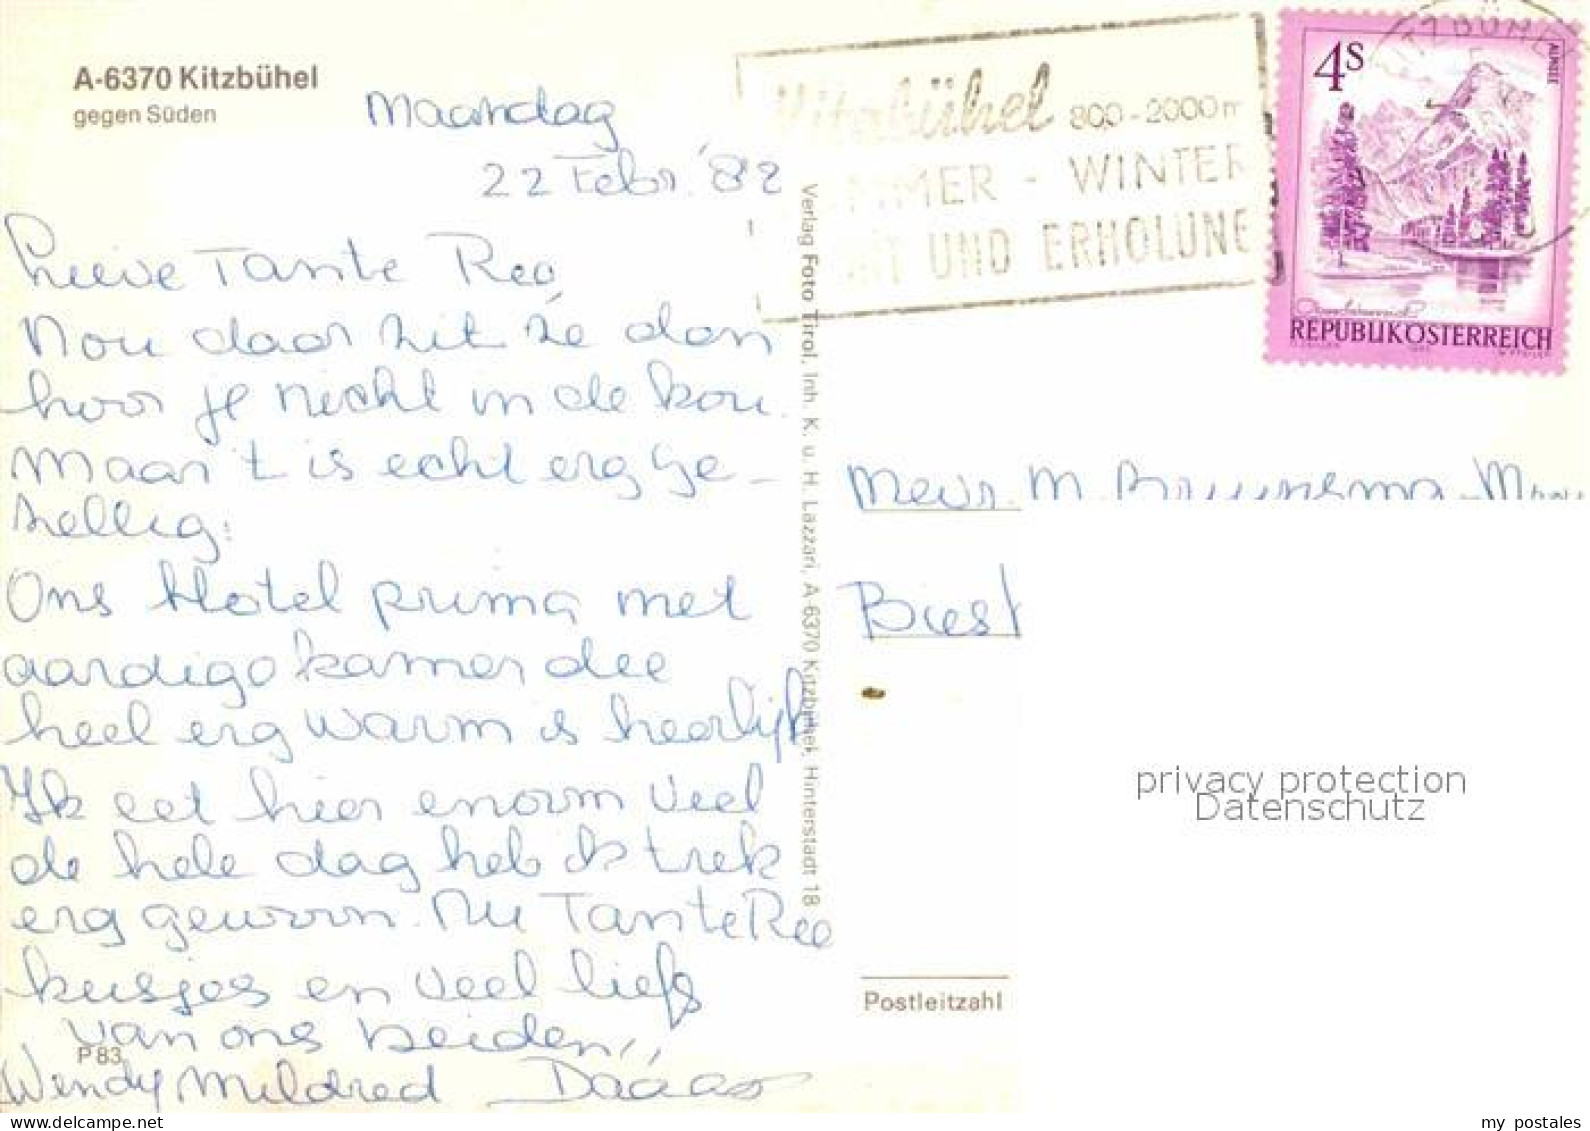 A-6370 Kitzbühel
gegen Süden
Maandag
22 Febr. '82
Lieve Tante Ree
Nou daar zit ze dan
hoor je nicht in de kou.
Maar 't is echt erg ge-
zellig.
Ons Hotel prima met
aardige kamer die
heel erg warm is heerlijk
Ik eet hier enorm veel
de hele dag heb ik trek
erg gewoon. Nu Tante Ree
kusjes en veel liefs
van ons beiden,,
Wendy Mildred Dááág
P 83
Verlag Foto Tirol, Inh. K. u. H. Lazzari, A-6370 Kitzbühel, Hinterstadt 18
Kitzbühel 800-2000 m
MMER - WINTER
UND ERHOLUNG
ITZBÜHE
4S
ALMSEE
REPUBLIK ÖSTERREICH
Mevr. M. Bruinsma
Biest
Postleitzahl
privacy protection
Datenschutz
www.delcampe.net
my_postales